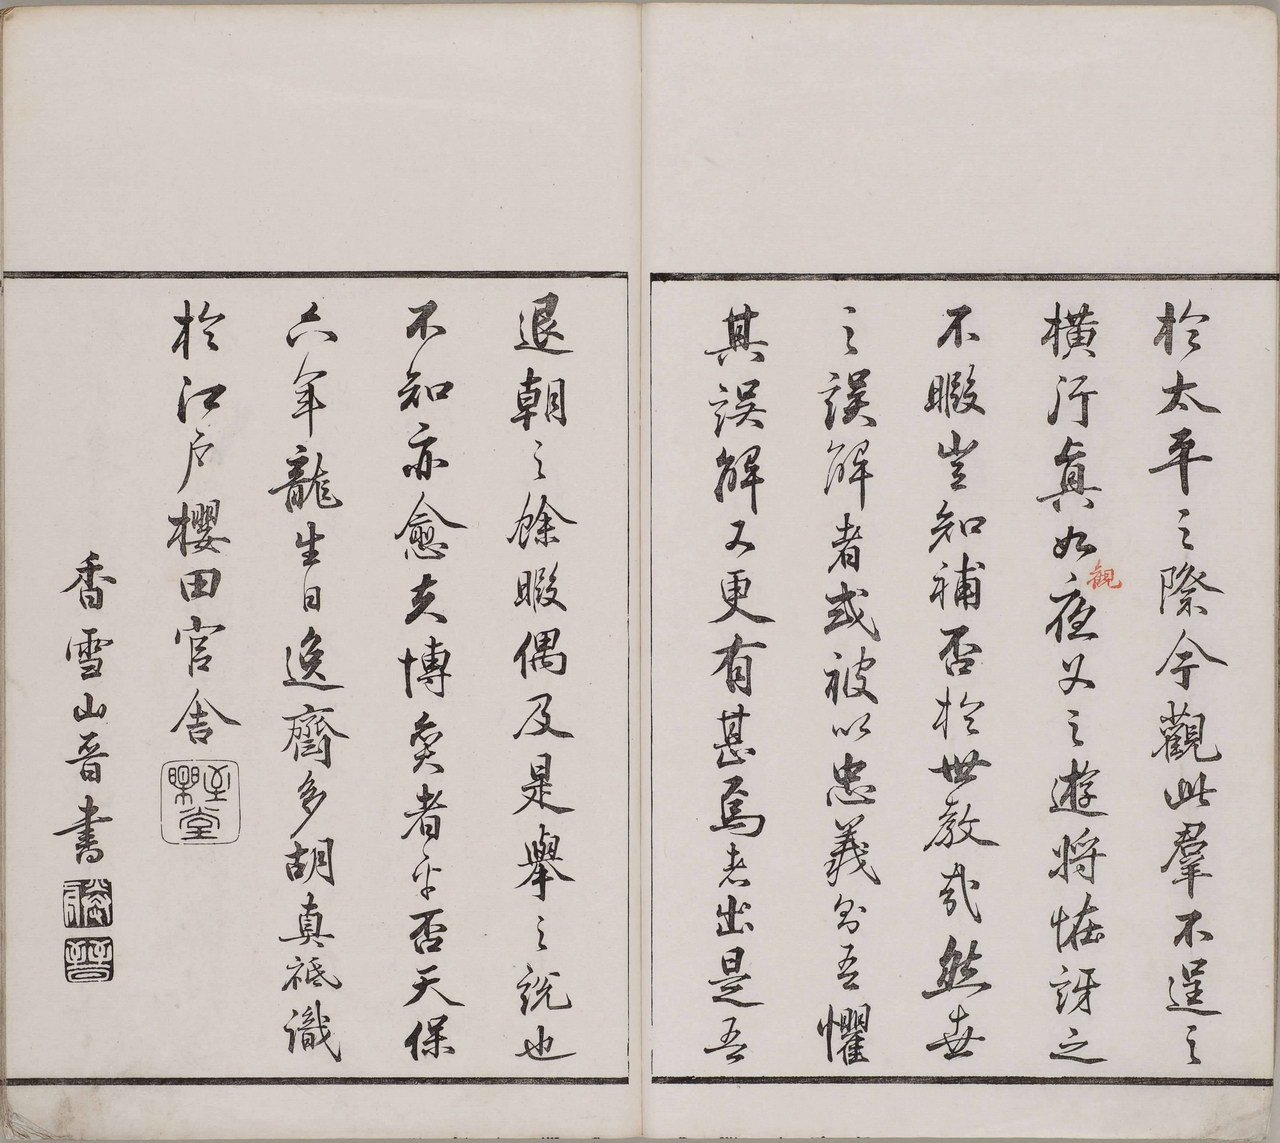 於太平之際今觀此羣不逞之
橫行真如夜叉之遊將怪訝之
觀
不暇豈知補否於世教哉然世
之誤解者或被以忠義名吾懼
其誤解又更有甚焉者出是吾
退朝之餘暇偶及是舉之説也
不知亦愈夫博奕者乎否天保
六年龍生日逸齋多胡真祗識
於江戶櫻田官舍
香雪山晋書